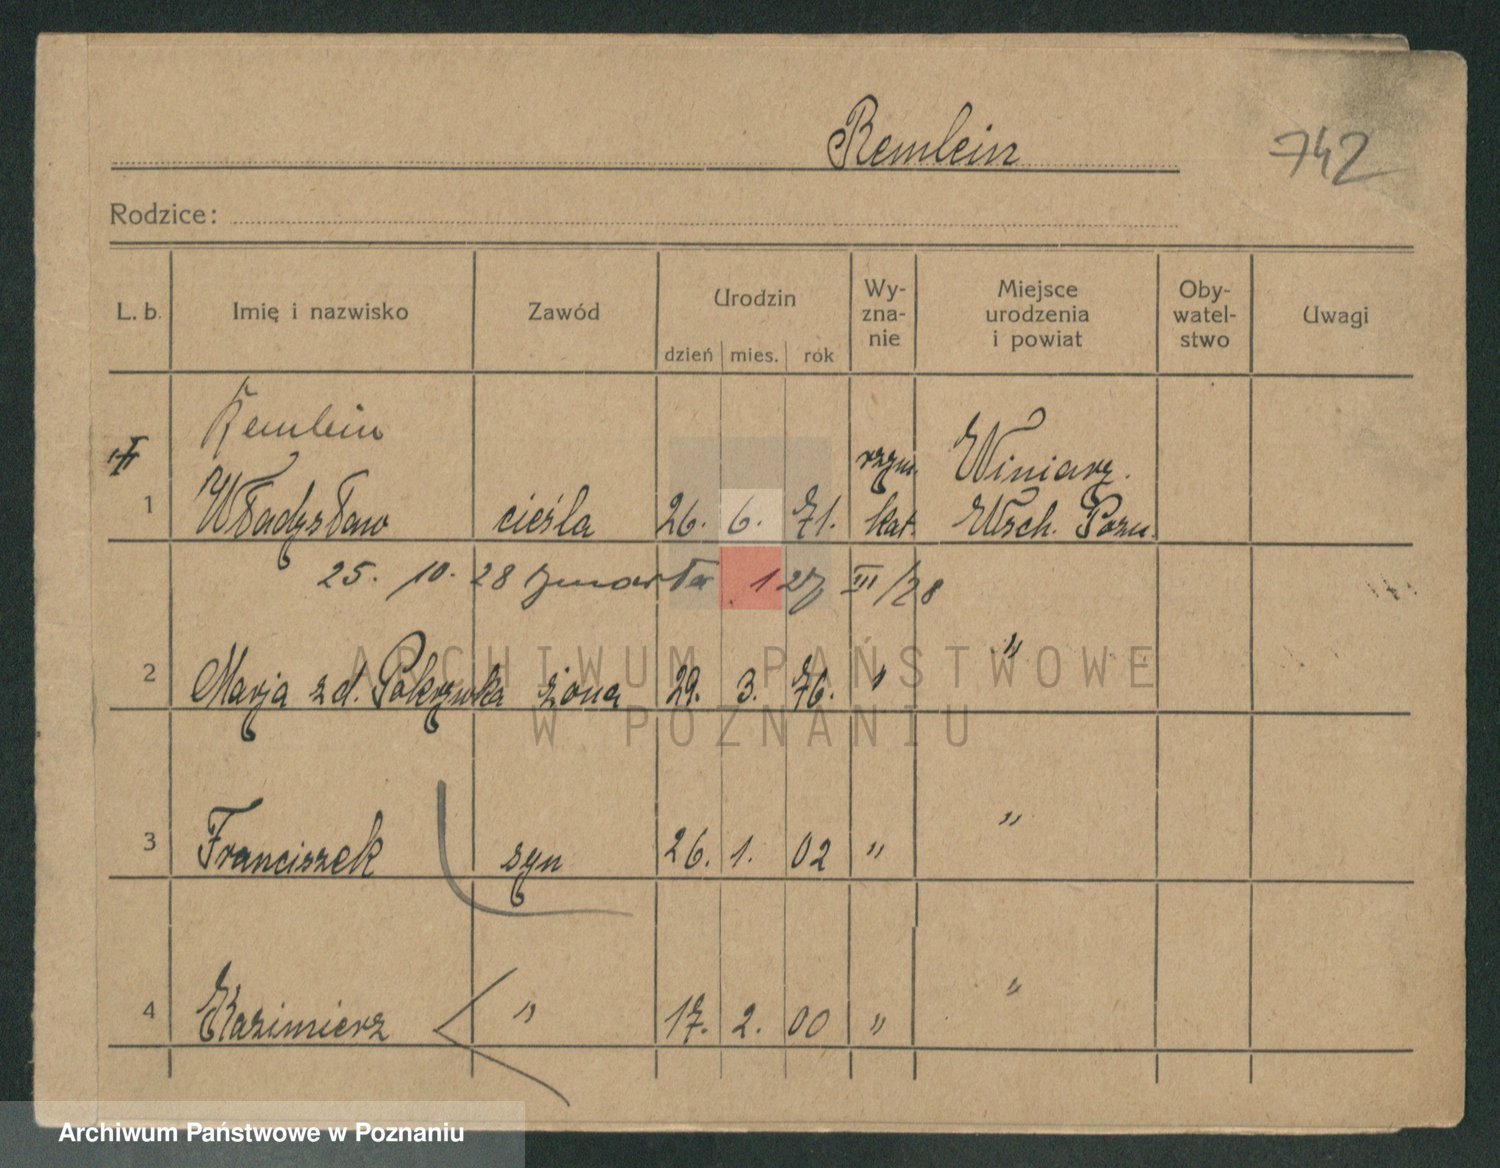 Remlein
742
Rodzice:
L. b.
Imię i nazwisko
Zawód
Urodzin
dzień mies. rok
Wy-
zna-
nie
Miejsce
urodzenia
i powiat
Oby-
watel-
stwo
Uwagi
Remlein
1 Władysław cieśla 26. 6. 71. rzym. kat. Winiary. Wsch. Pozn.
25. 10. 28 zmarła 127 III/28
2 Marja z d. Pokrzywka żona 29. 3. 76. " "
3 Franciszek syn 26. 1. 02 " "
4 Kazimierz " 17. 2. 00 " "
ARCHIWUM PAŃSTWOWE
W POZNANIU
Archiwum Państwowe w Poznaniu